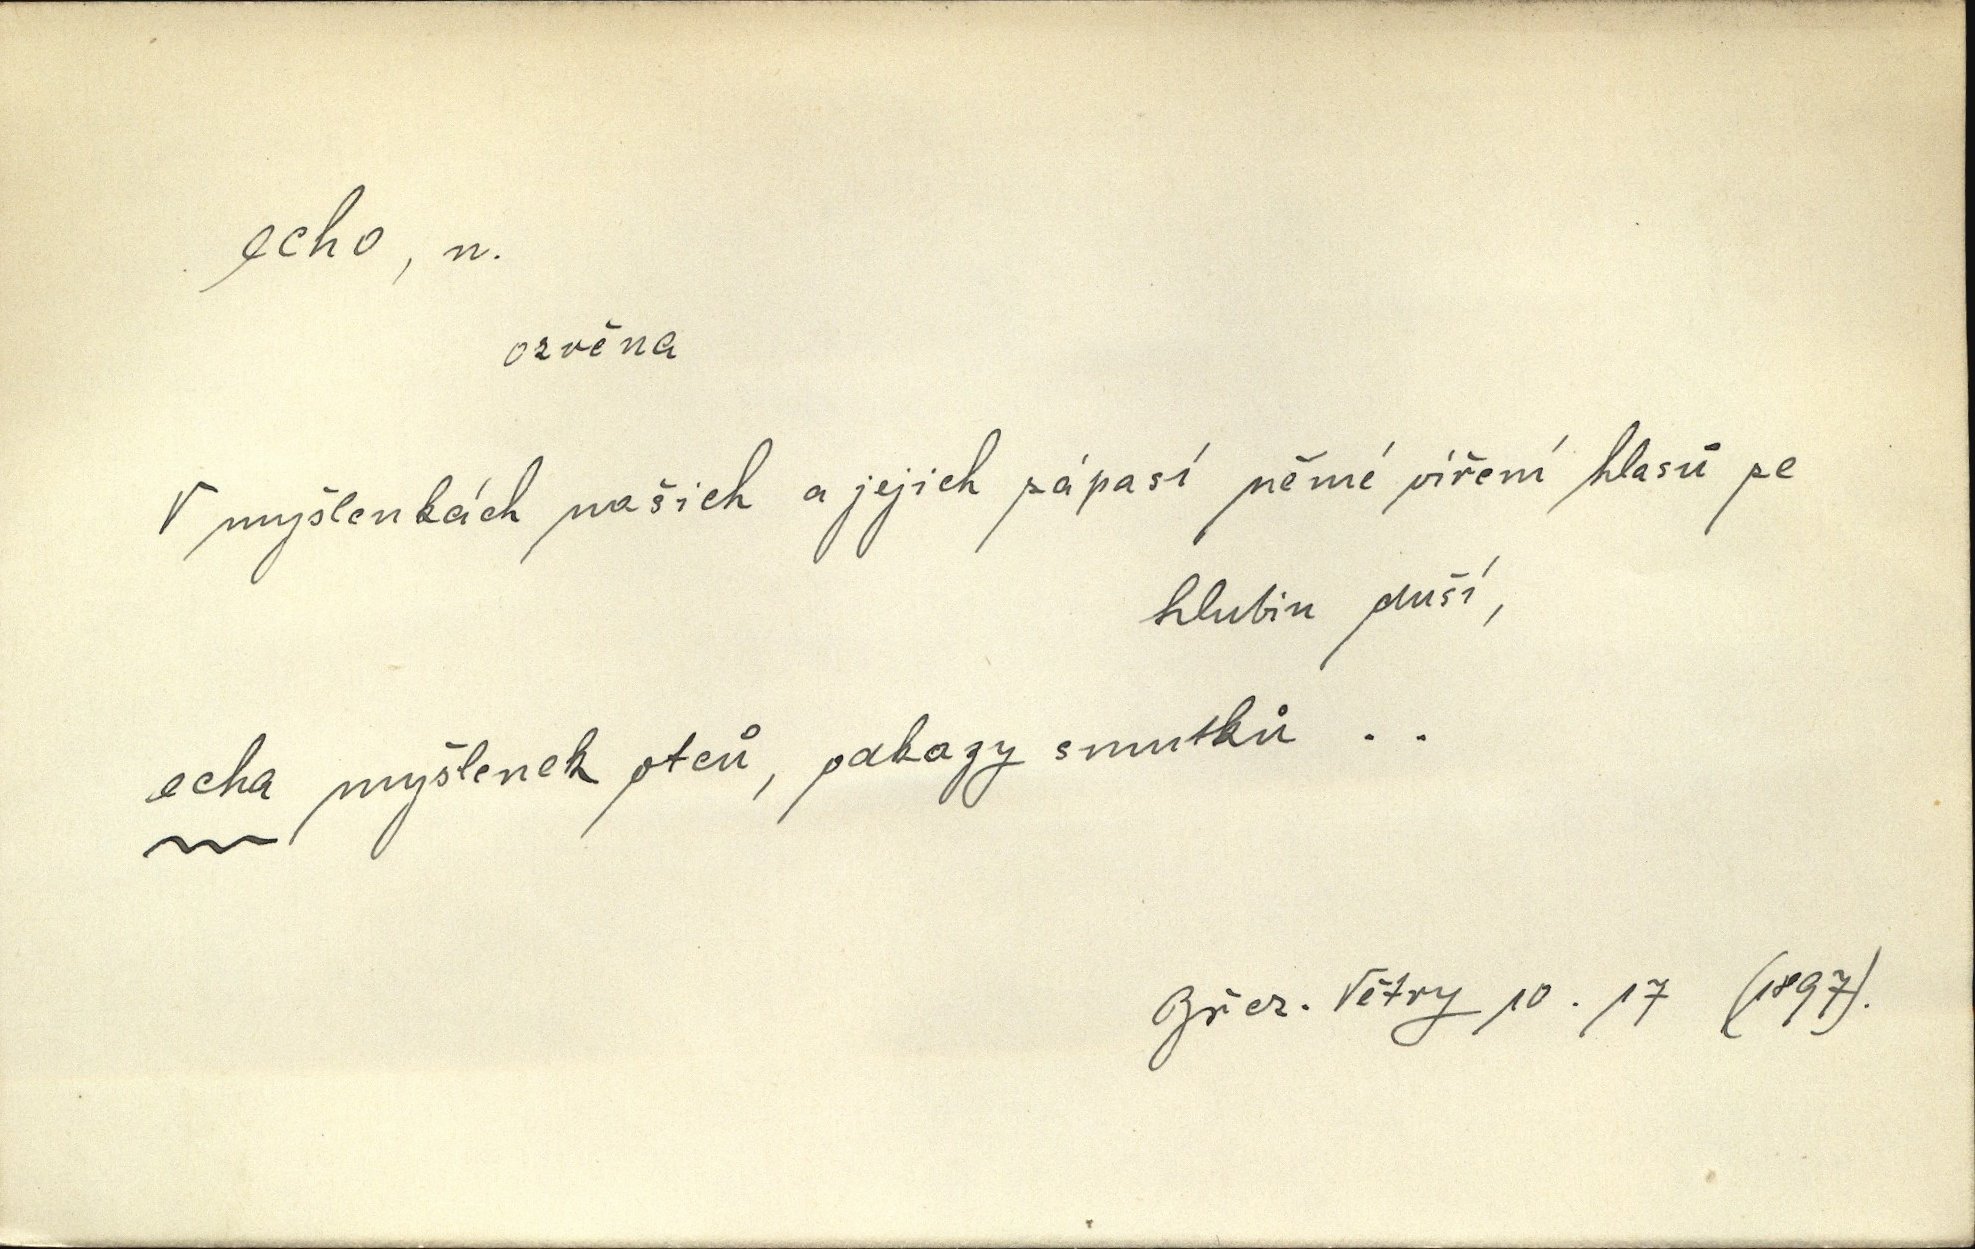 echo, n.
ozvěna
V myšlenkách našich a jejich zápasí němé víření hlasů ze
hlubin duší,
echa myšlenek otců, odkazy smutků . .
Břez. Větry 10. 17 (1897).